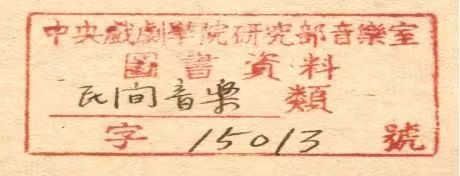 中央戲劇學院研究部音樂室
圖書資料
民间音樂類
字15013號